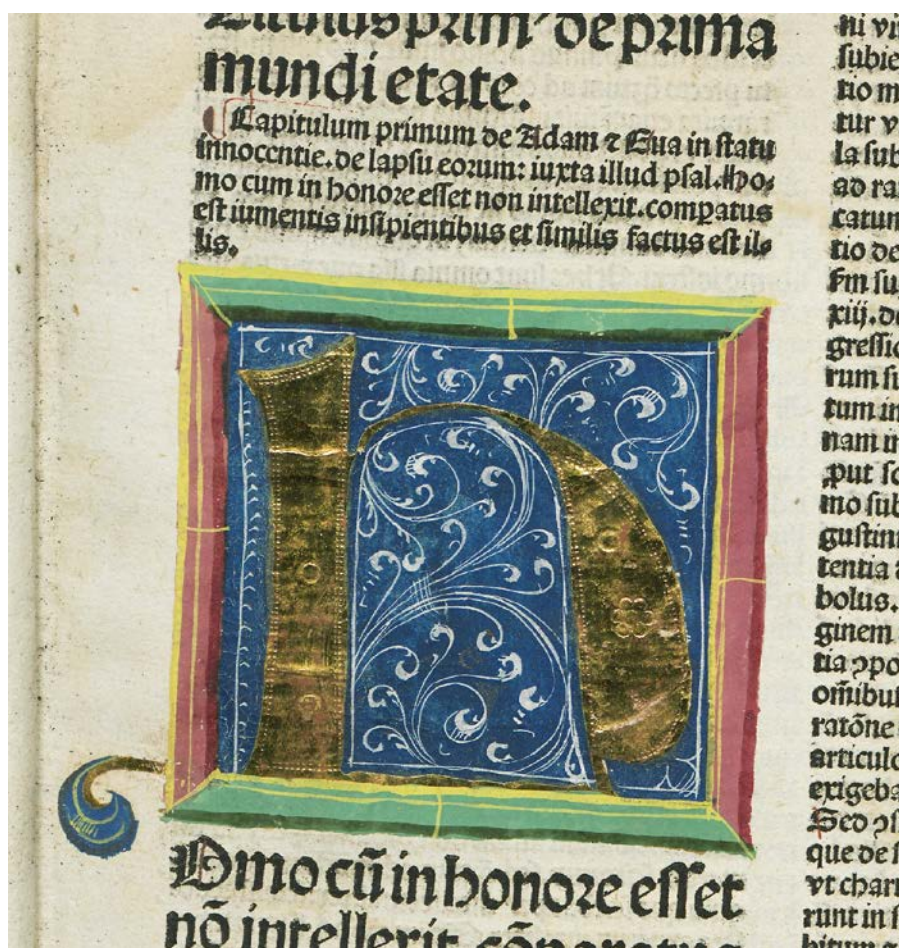 Titulus prim⁹ de prima
mundi etate.
Capitulum primum de Adam ⁊ Eua in statu
innocentie. de lapsu eorum: iuxta illud psal. Ho-
mo cum in honore esset non intellexit. comꝑatus
est iumentis insipientibus et similis factus est il-
lis.
h
Omo cū in honore esset
nō intellexit. cōparatus
ni vi
subie
tio m
tur v
la sub
ad ra
catum
tio de
su
xiij. de
gressio
rum su
tum in
nam in
ꝓut sc
mo sub
gustinu
tentia
bolus.
ginem
tia ꝓpo
om̄ibu
ratōne
articulo
exigeba
Sed
que de s
vt char
runt in s